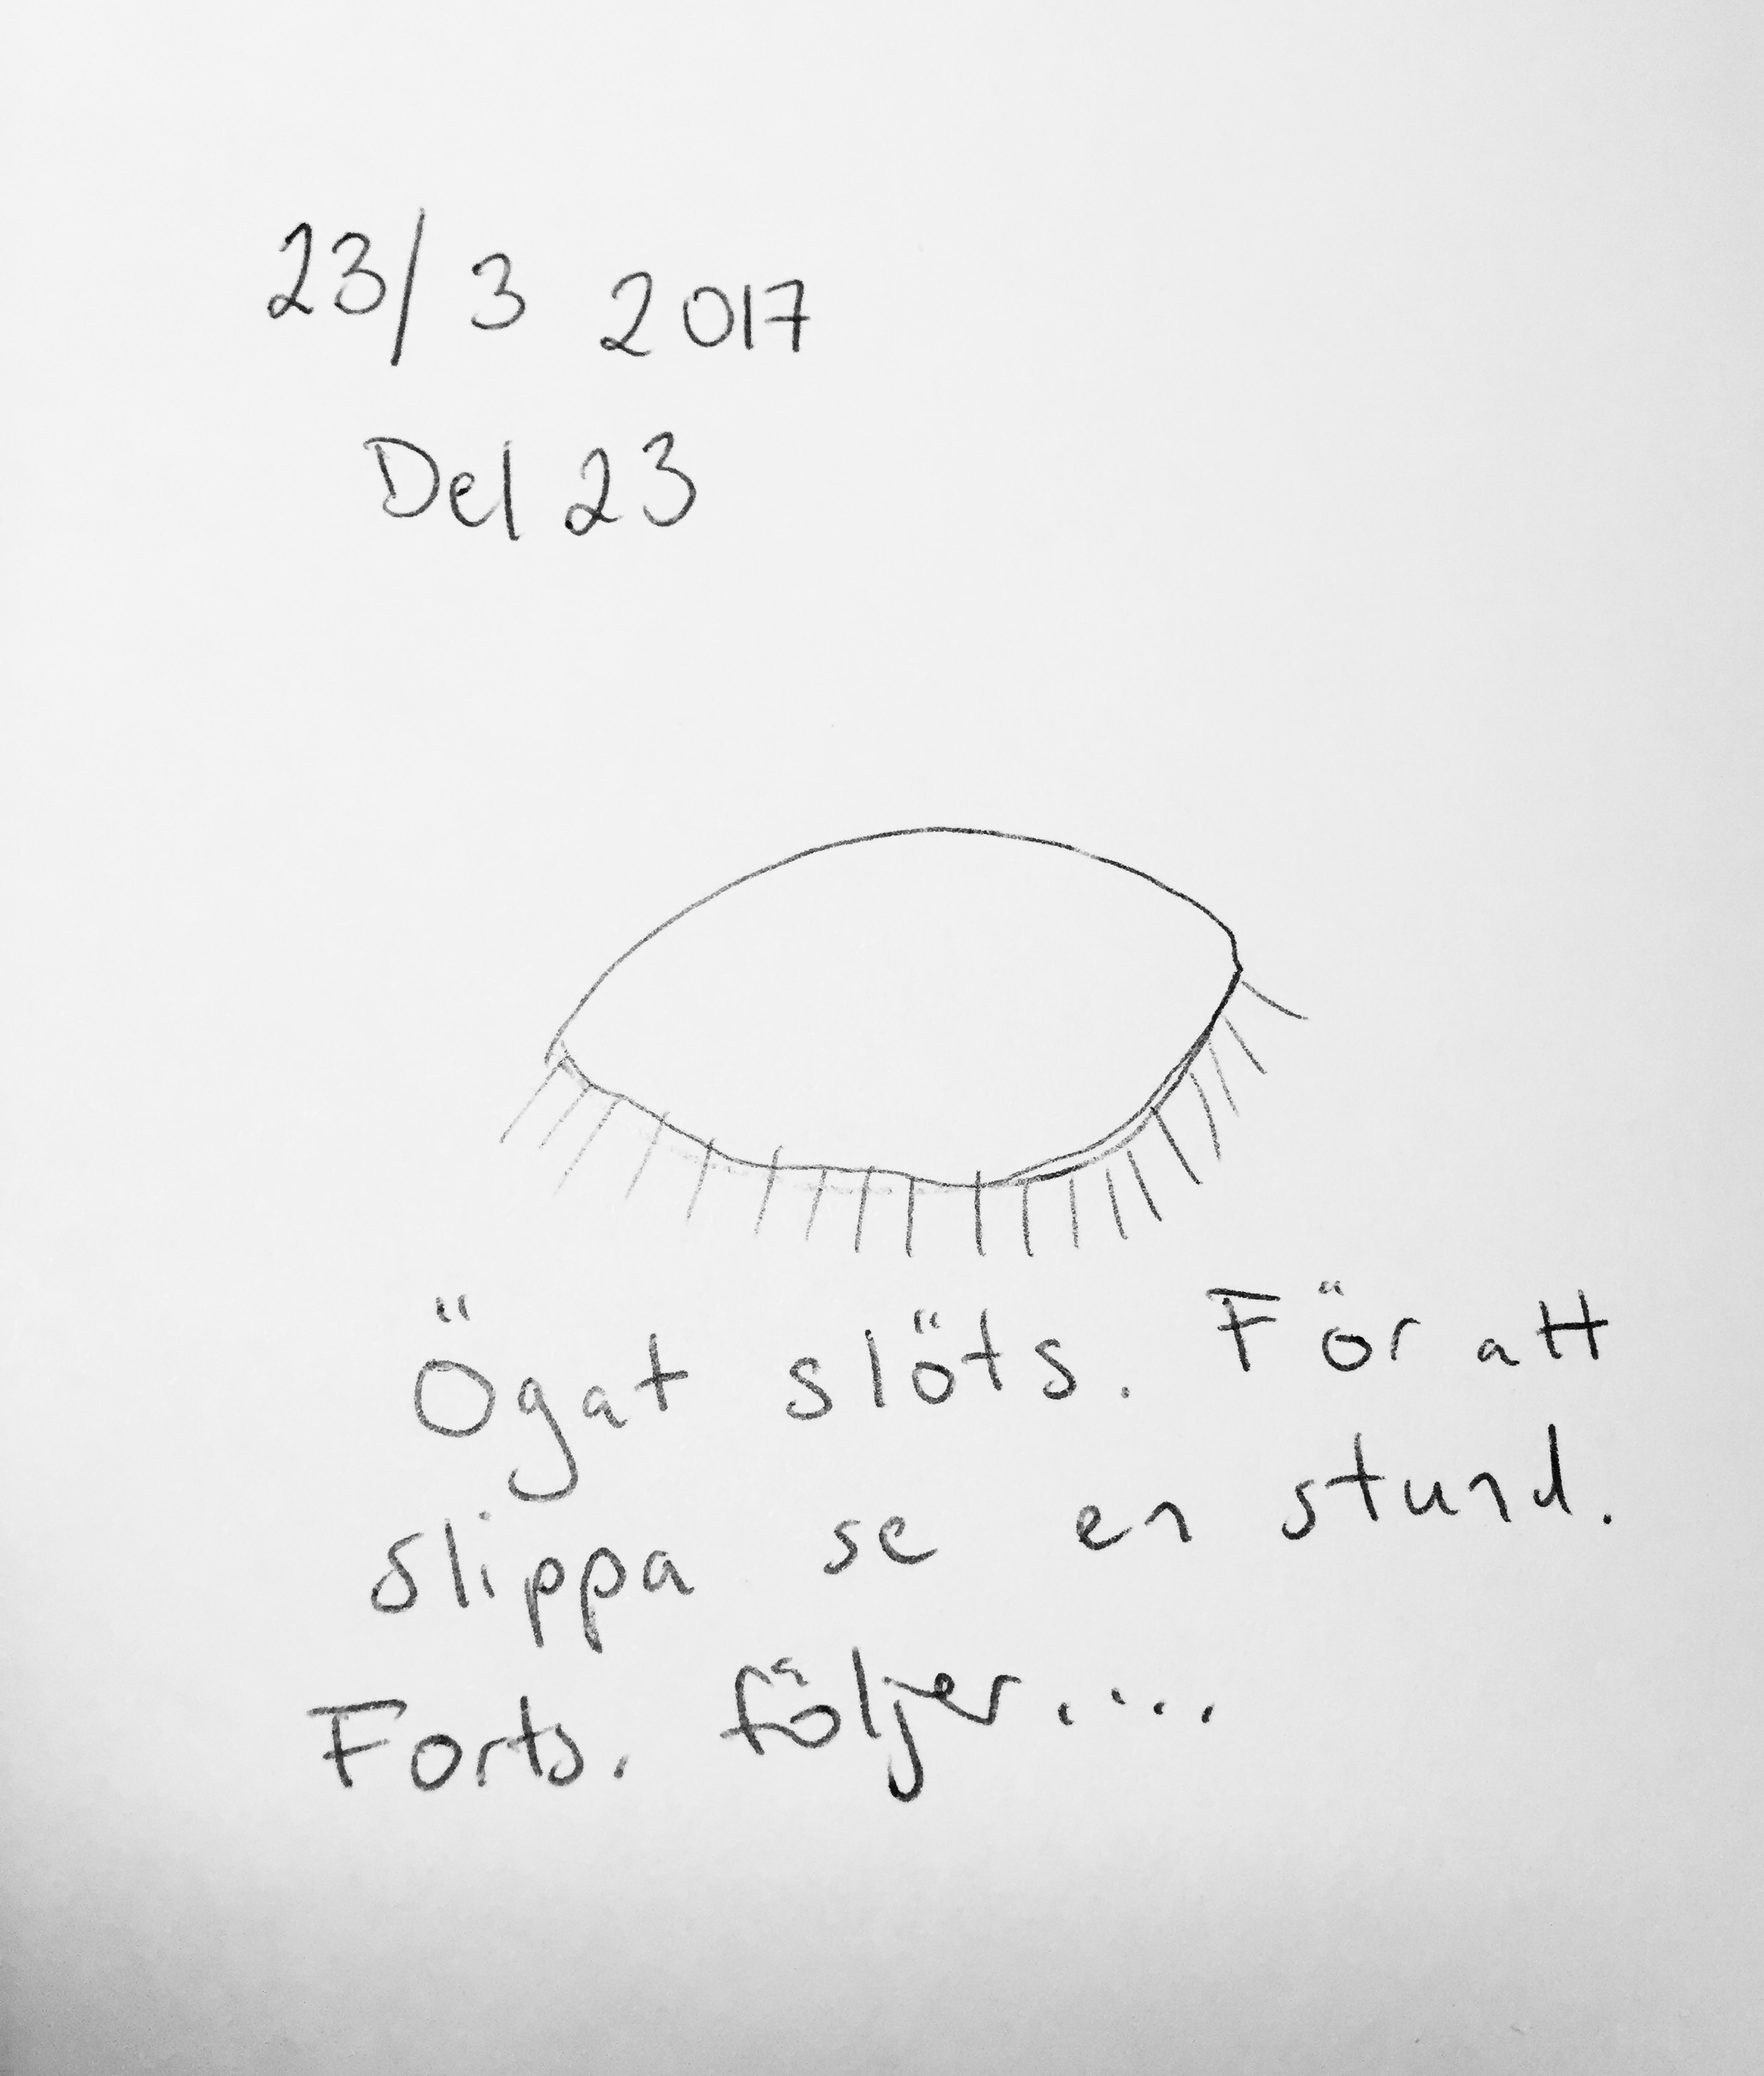 23/3 2017
Del 23
Ögat slöts. För att
slippa se en stund.
Forts. följer....